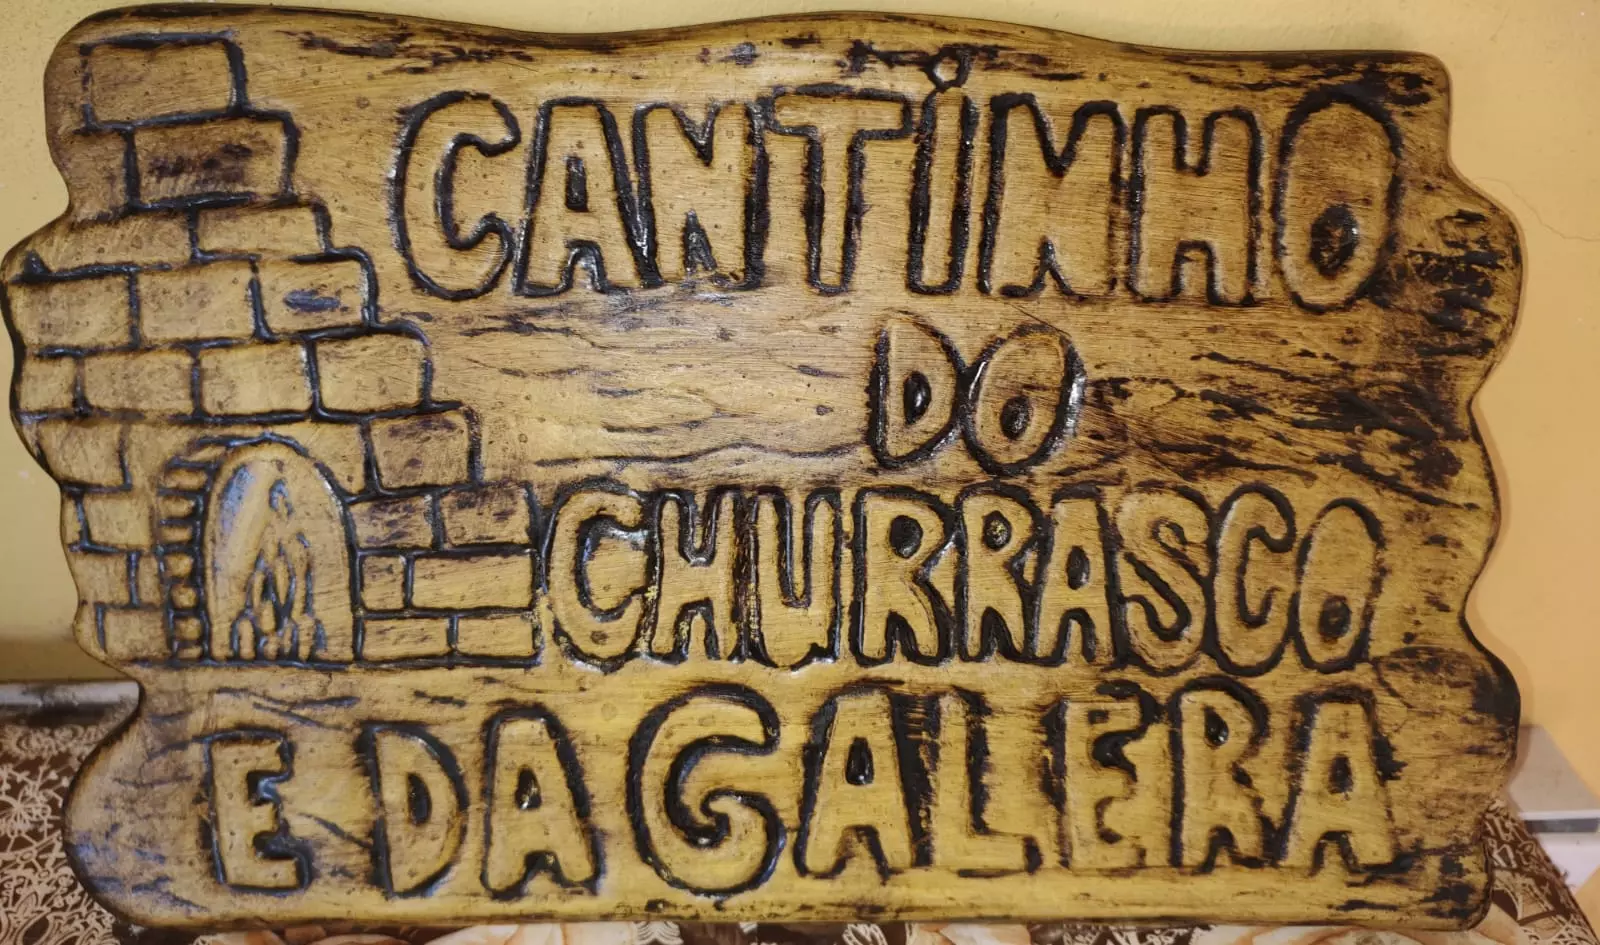 CANTiNHO
DO
CHURRASCO
E DA GALERA